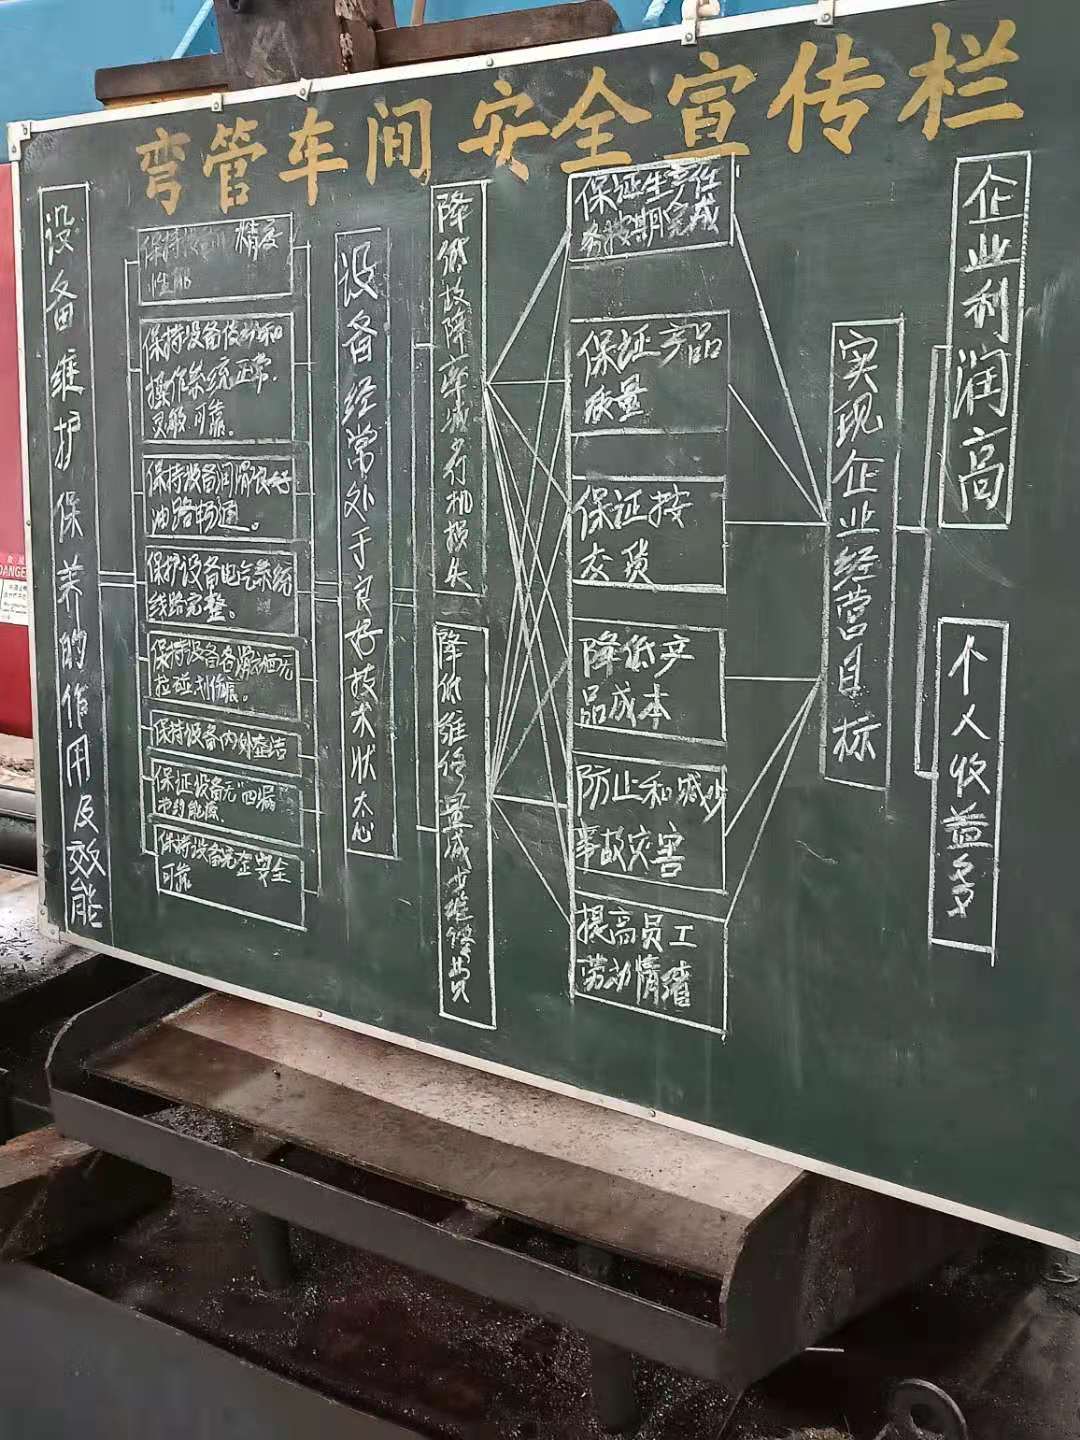 弯管车间安全宣传栏
设备维护保养的作用及效能
保持 精度
性
保持设备传 和
操作系统正常.
灵敏可靠。
保持设备润滑良好
油路畅通。
保护设备电气系统
线路完整。
保持设备各滑动面无
拉碰划伤痕。
保持设备内外整洁
保证设备无"四漏"
节约能源
保持设备 安全
可靠
设备经常处于良好技术状态
降低故障率减少 机损失
降低维修量减少维修费
保证生产任
务按期完成
保证产品
质量
保证按
交货
降低产
品成本
防止和减少
事故灾害
提高员工
劳动情绪
实现企业经营目标
企业利润高
个人收益多
DANGER